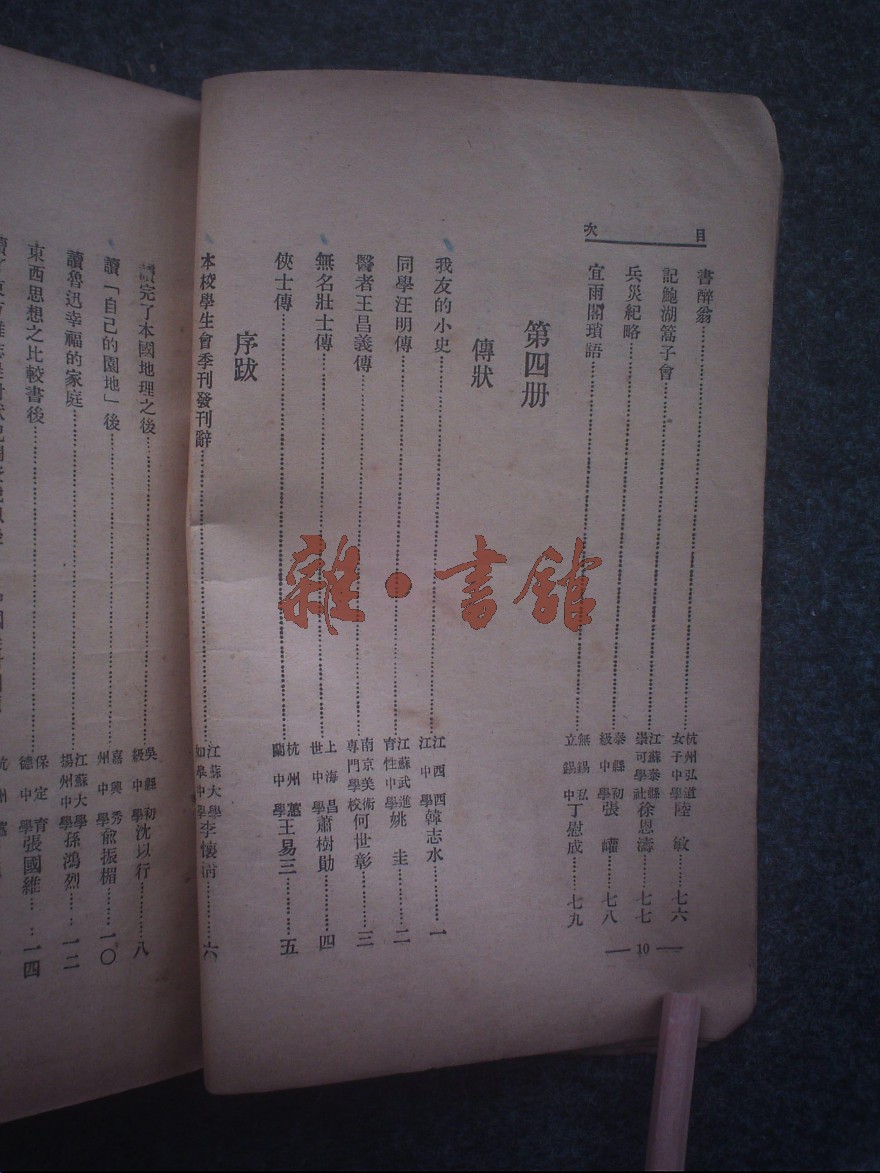 目次
書醉翁……杭州弘道女子中學陸敏……七六
記鮑湖篙子會……江蘇泰縣崇可學社徐恩濤……七七
兵災紀略……泰縣初級中學張㬇……七八
宜雨閣瑣語……無錫私立錫中丁慰成……七九
第四册
傳狀
我友的小史……江西西江中學韓志水……一
同學汪明傳……江蘇武進育性中學姚圭……二
醫者王昌義傳……南京美術專門學校何世彰……三
無名壯士傳……上海昌世中學蕭樹勛……四
俠士傳……杭州蕙蘭中學王易三……五
序跋
本校學生會季刊發刊辭……江蘇大學如皋中學李懷清……六
10
讀完了本國地理之後……吳縣初級中學沈以行……八
讀「自己的園地」後……嘉興秀州中學兪振楣……一〇
讀魯迅幸福的家庭……江蘇大學揚州中學孫鴻烈……一二
東西思想之比較書後……保定育德中學張國維……一四
杭州蕙
雜·書館